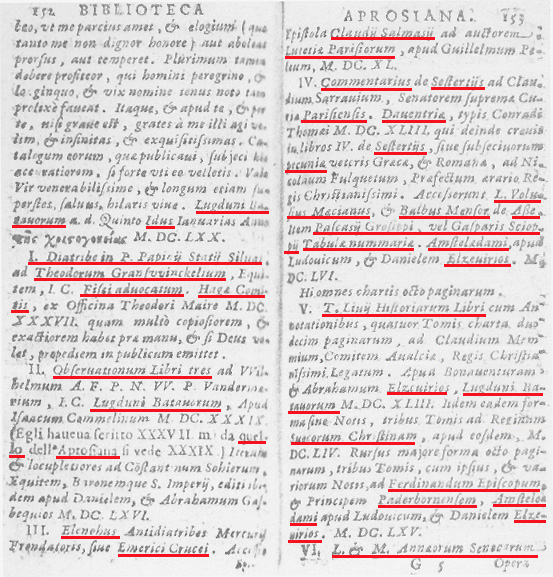 152 BIBLIOTECA
beo, ut me parcius amet, & elogium (quo
tanto me non dignor honore) aut aboleat
prorsus, aut temperet. Plurimum tamen
debere profiteor, qui homini peregrino, &
longinquo, & vix nomine tenus noto tam
prolixè faveat. Itaque, & apud te, &
te, nisi grave est, grates à me illi agi ve-
lim, & infinitas, & exquisitissimas. Ca-
talogum eorum, quæ publicaui, subjeci hic
accuratiorem, si forte vti eo velletis. Vale
Vir venerabilissime, & longum etiam su-
perstes, saluus, hilaris viue. Lugduni Ba-
tauorum a. d. Quinto Idus Ianuarias Anno
τῆς Χριςογονίας M. DC. LXX.
I. Diatribe in P. Papinij Statij Siluas
ad Theodorum Gransvvinckelium, Equi-
tem, I. C. Fisci aduocatum. Hagæ Comi-
tis, ex Officina Theodori Maire M. DC.
XXXVII. quam multò copiosiorem, &
exactiorem habet præ manu, & si Deus vo-
let, propediem in publicum emittet.
II. Observationum Libri tres ad VVil-
helmum A. F. P. N. VV. P. Vander-
rium, I. C. Lugduni Batauorum, Apud
Isaacum Commelinum M. DC. XXXIX.
(Egli haueua scritto XXXVII. mà da quel-
lo dell'Aprosiana si vede XXXIX.)
& locupletiores ad Cõstantinum Sohierum,
Equitem, Baronemque S. Imperij, editi ibi-
dem apud Danielem, & Abrahamum Gas-
bequios M. DC. LXVI.
III. Elenchus Antidiatribes Mercurij
Frondatoris, siue Emerici Crucei.
APROSIANA. 153
Epistola Claudij Salmasij ad auctorem
Lutetiæ Parisiorum, apud Guillelmum Pe-
lium, M. DC. XL.
IV. Commentarius de Sestertijs ad Clau-
dium Sarrauium, Senatorem supremæ Cu-
riæ Parisiensis. Dauentriæ, typis Conradi
Thomæi M. DC. XLIII. qui deinde creuit
in libros IV. de Sestertijs, siue subsecivorum
pecuniæ veteris Græcæ, & Romanæ, ad Ni-
colaum Fulquetum, Præfectum ærario Re-
gis Christianissimi. Accesserunt L. Volu-
sius Mæcianus, & Balbus Mensor de Asse,
item Pascasij Grosippi, vel Gasparis Sciop-
pij Tabulæ nummariæ. Amstelædami, apud
Ludouicum, & Danielem Elzevirios. M.
DC. LVI.
Hi omnes chartis octo paginarum.
V. T. Liuij Historiarum Libri cum An-
notationibus, quatuor Tomis charta duo-
decim paginarum, ad Claudium Mem-
mium, Comitem Auaiciæ, Regis Christia-
nissimi Legatum. Apud Bonauenturam
& Abrahamum Elzeuirios, Lugduni Ba-
tauorum M. DC. XLIII. Iidem eadem for-
ma sine Notis, tribus Tomis ad Reginam
Suecorum Christinam, apud eosdem, M.
DC. LIV. Rursus majore forma octo pagi-
narum, tribus Tomis, cum ipsius, & va-
riorum Notis, ad Ferdinandum Episcopum
& Principem Paderbornensem, Amstelo-
dami apud Ludouicum, & Danielem Elze-
uirios. M. DC. LXV.
VI. L. & M. Annæorum Senecarum
G 5 Opera